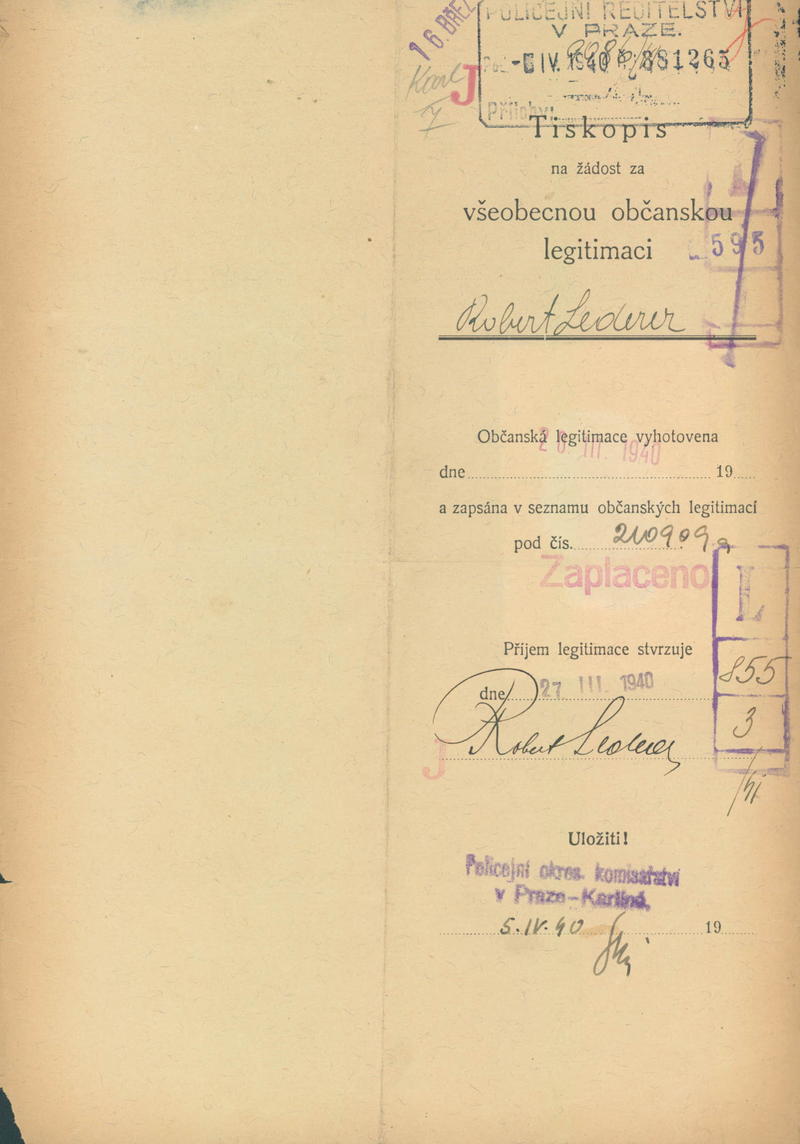 16. BŘEZ
POLICEJNÍ ŘEDITELSTVÍ
V PRAZE.
IV. 1940 881265
Karl
J
Přílohy:
Tiskopis
na žádost za
všeobecnou občanskou
legitimaci
595
Robert Lederer
Občanská legitimace vyhotovena
26 III. 1940
dne 19
a zapsána v seznamu občanských legitimací
pod čís. 210909
Zaplaceno
L
Příjem legitimace stvrzuje
855
dne 27 III. 1940
3
Robert Lederer
J
Uložiti!
Policejní okres. komisařství
v Praze-Karlíně.
5. IV. 40 19